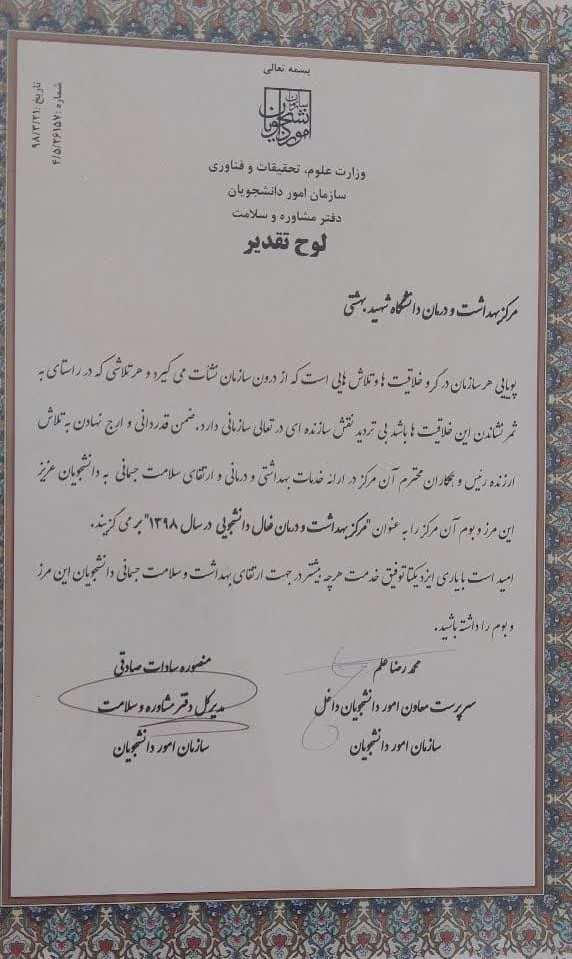 بسمه تعالی
تاریخ: ۹۸/۳/۲۱
شماره: ۴/۵/۲۶۱۵۷
سازمان امور دانشجویان
وزارت علوم، تحقیقات و فناوری
سازمان امور دانشجویان
دفتر مشاوره و سلامت
لوح تقدیر
مرکز بهداشت و درمان دانشگاه شهید بهشتی
پویایی هر سازمان در گرو خلاقیت ها و تلاش هایی است که از درون سازمان نشأت می گیرد و هر تلاشی که در راستای به
ثمر نشاندن این خلاقیت ها باشد بی تردید نقش سازنده ای در تعالی سازمانی دارد. ضمن قدردانی و ارج نهادن به تلاش
ارزنده رئیس و همکاران محترم آن مرکز در ارائه خدمات بهداشتی و درمانی و ارتقای سلامت جسمانی به دانشجویان عزیز
این مرز و بوم آن مرکز را به عنوان "مرکز بهداشت و درمان فعال دانشجویی در سال ۱۳۹۸" بر می گزیند.
امید است با یاری ایزد یکتا توفیق خدمت هرچه بیشتر در جهت ارتقای بهداشت و سلامت جسمانی دانشجویان این مرز
و بوم را داشته باشید.
محمد رضا علم
سرپرست معاون امور دانشجویان داخل
سازمان امور دانشجویان
منصوره سادات صادقی
مدیر کل دفتر مشاوره و سلامت
سازمان امور دانشجویان